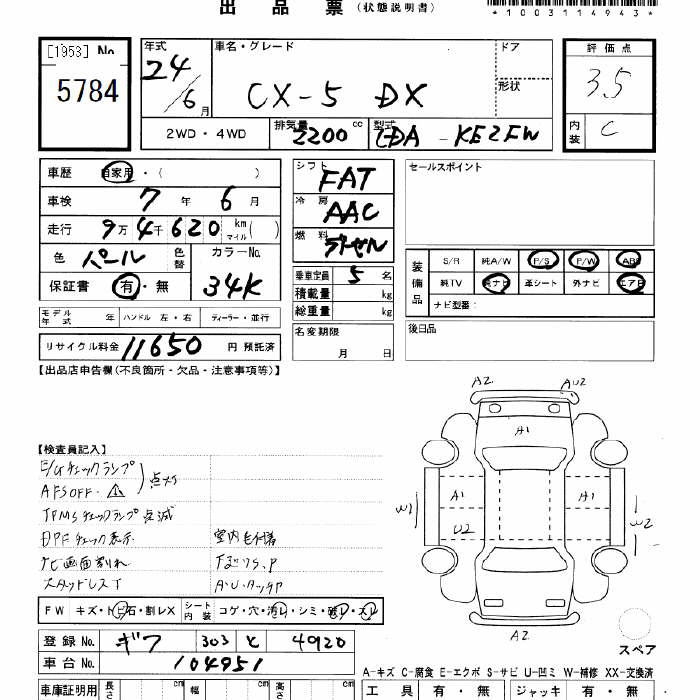 出品票 (状態説明書)
*1003114943*
[1953] No
5784
年式 24/6月
車名・グレード CX-5 DX
ドア
形状
2WD・4WD
排気量 2200 cc
型式 LDA-KE2FW
評価点 3.5
内装 C
車歴 自家用・( )
車検 7年 6月
走行 9万4千620 km マイル ( )
色 パール 色替
カラーNo. 34K
保証書 有・無
シフト FAT
冷房 AAC
燃料 ディーゼル
乗車定員 5名
積載量 kg
総重量 kg
名変期限
月 日
セールスポイント
装備品
S/R 純A/W P/S P/W ABS
純TV 純ナビ 革シート 外ナビ エアB
ナビ型番:
後日品
モデル年式 年 ハンドル 左・右 ディーラー・並行
リサイクル料金 11650 円 預託済
【出品店申告欄(不良箇所・欠品・注意事項等)】
【検査員記入】
E/Gチェックランプ
AFS OFF・⚠ 点灯
TPMSチェックランプ点滅
DPFチェック表示
ナビ画面割れ
スタッドレスT
A2
AU2
A1
W1
A1
U2
A1
W2
A2
FW キズ・トビ石・割レX シート内装 コゲ・穴・汚レ・シミ・破レ・スレ
登録No. ギフ 303 と 4920
車台No. 104951
スペア
A-キズ C-腐食 E-エクボ S-サビ U-凹ミ W-補修 XX-交換済
車庫証明用 長さ cm 幅 cm 高さ cm
工具 有・無 ジャッキ 有・無